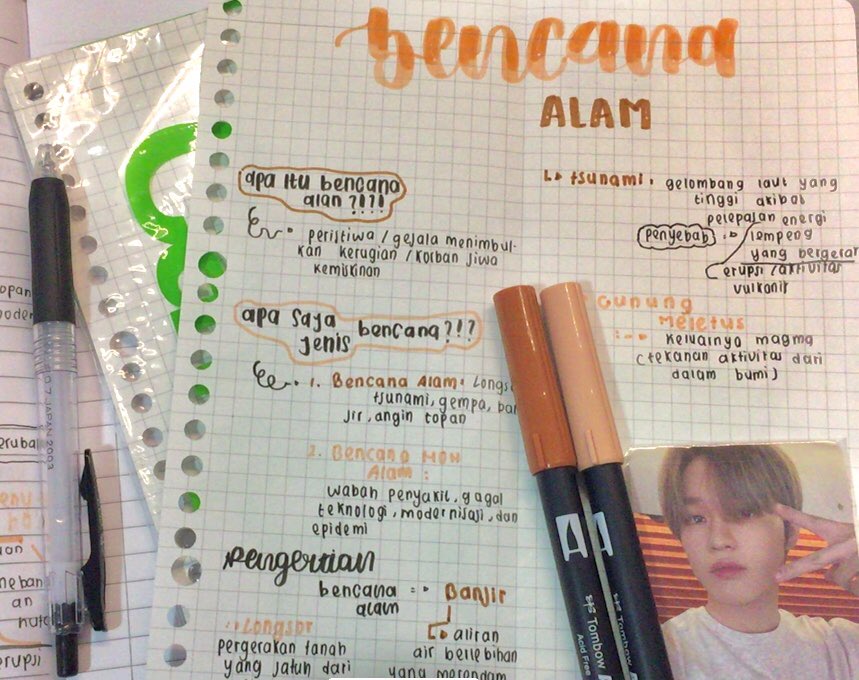 bencana
ALAM
apa itu bencana
alan ?!?!
peristiwa / gejala menimbul-
kan kerugian / korban jiwa
kemiskinan
apa saja
jenis
bencana?!?
1. Bencana Alam: Longs
tsunami, gempa, ban
jir, angin topan
2. Bencana NON
Alam :
wabah penyakit, gagal
teknologi, modernisasi, dan
epidemi
Pengertian
bencana
alam
Banjir
aliran
air berlebihan
yang merendam
Longsor
pergerakan tanah
yang jatuh dari
tsunami : gelombang laut yang
tinggi akibat
pelepasan energi
penyebab
lempeng
yang bergerar
erupsi / aktivitas
vulkanik
Gunung
Meletus
Keluarnya magma
(tekanan aktivitas dari
dalam bumi)
Tombow
Acid Free
Tombow
0.7 JAPAN 2003
erubal
an
erupsi